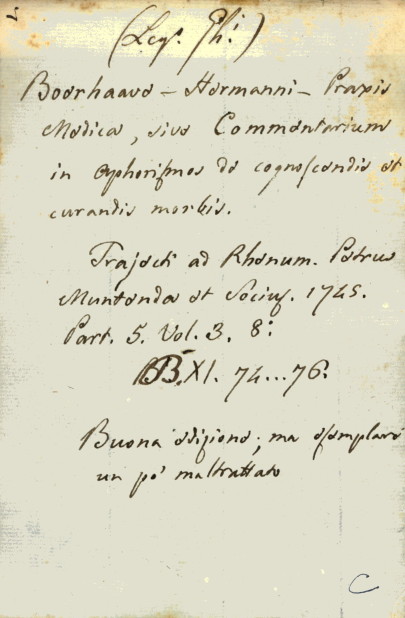 (Leg. Ghi.)
Boerhaave - Hermanni - Praxis
Medica, sive Commentarium
in Aphorismos de cognoscendis et
curandis morbis.
Trajecti ad Rhenum. Petrus
Muntendam et Socius. 1745.
Part. 5. Vol. 3. 8:
BB. XI. 74...76.
Buona edizione; ma esemplare
un pò maltrattato
C